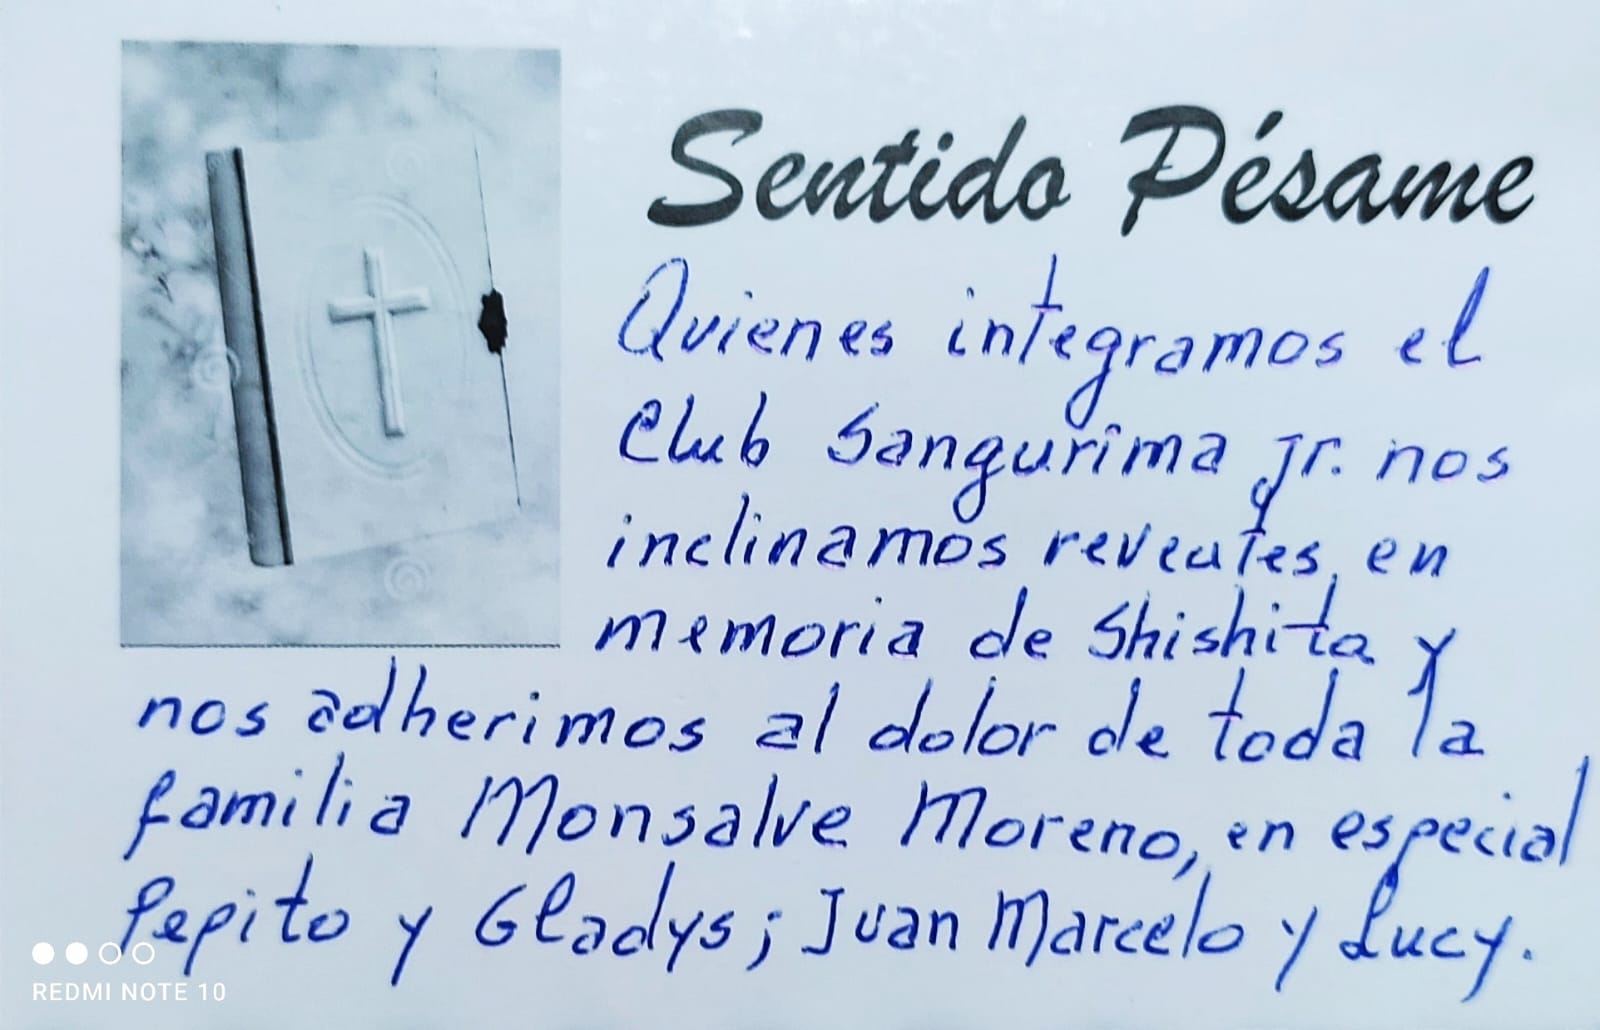 Sentido Pésame
Quienes integramos el
Club Sangurima Jr. nos
inclinamos reventes, en
memoria de Shishita y
nos adherimos al dolor de toda la
familia Monsalve Moreno, en especial
Pepito y Gladys; Juan Marcelo y Lucy.
REDMI NOTE 10